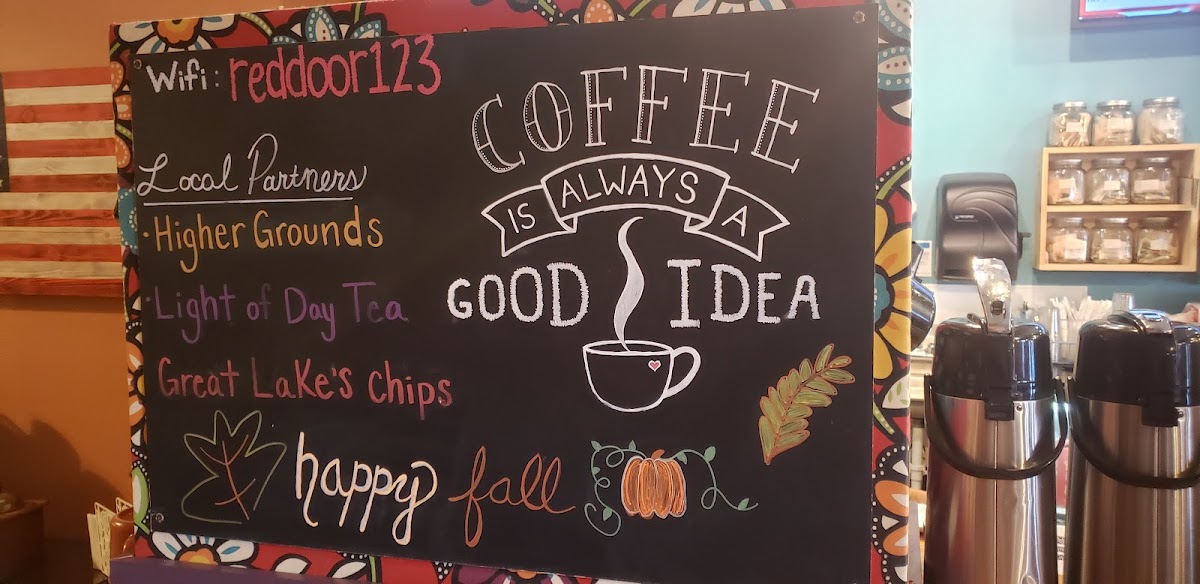 Wifi: reddoor123
Local Partners
· Higher Grounds
· Light of Day Tea
Great Lake's Chips
COFFEE
IS ALWAYS A
GOOD IDEA
happy fall